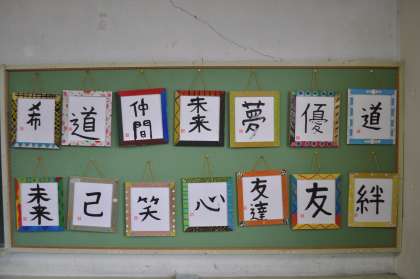 希 道 仲間 未来 夢 優 道
未来 己 笑 心 友達 友 絆